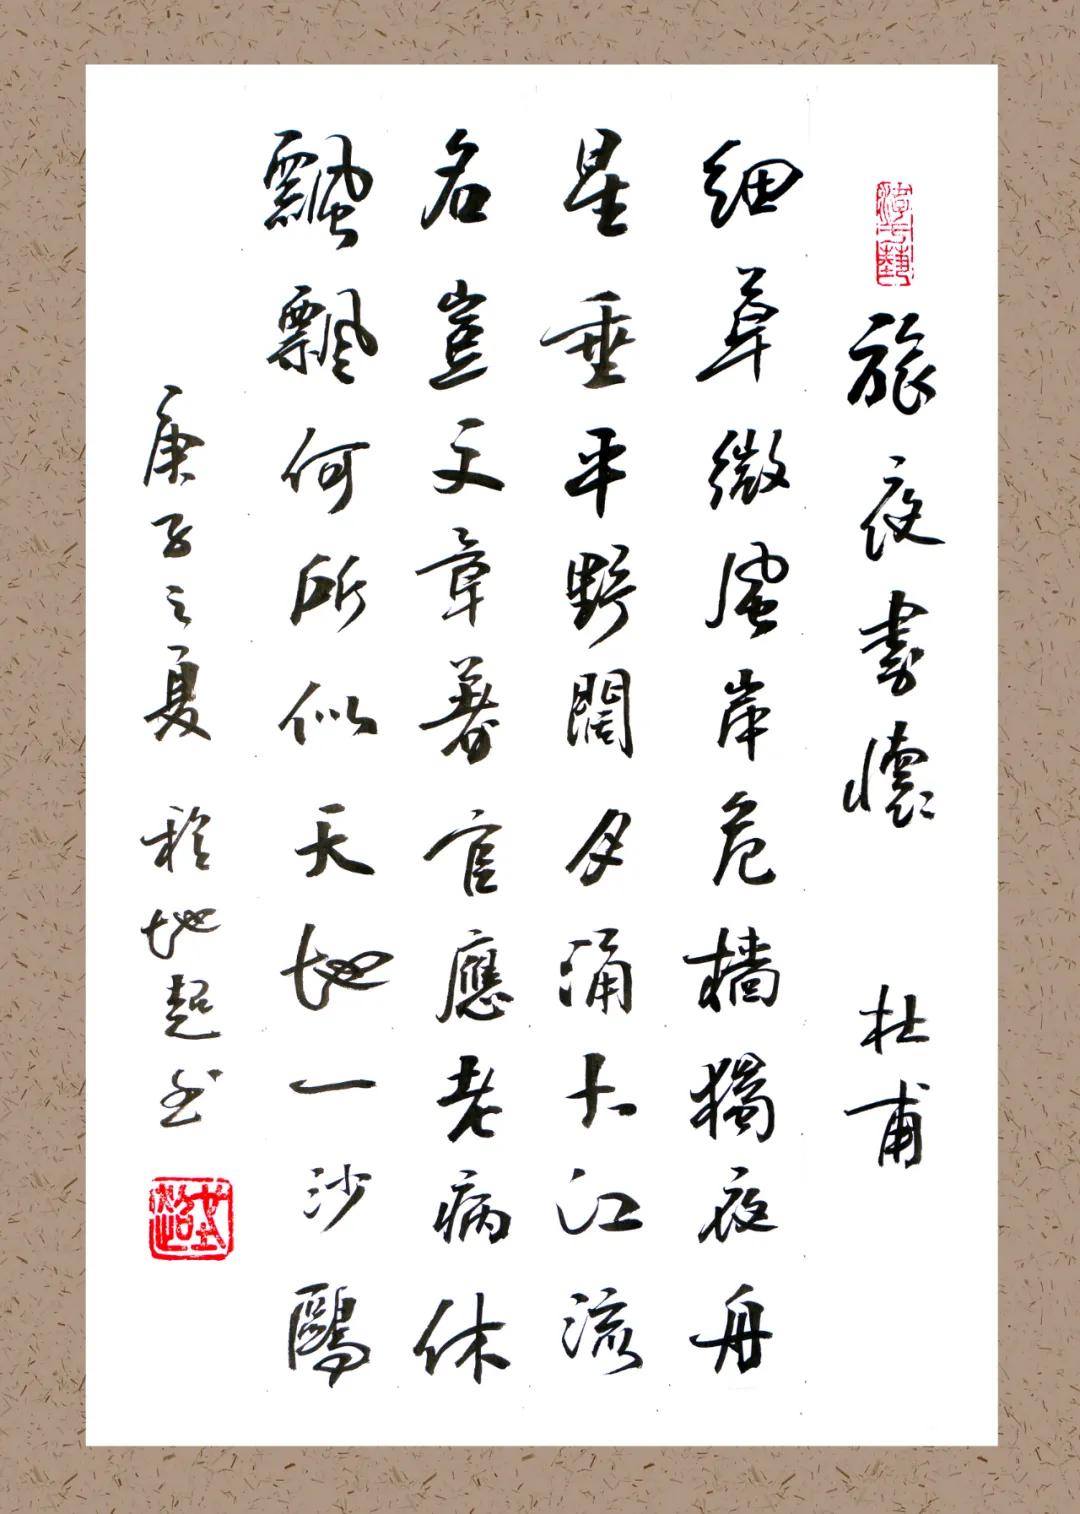 游于藝
旅夜書懷 杜甫
細草微風岸危檣獨夜舟
星垂平野闊月涌大江流
名豈文章著官應老病休
飄飄何所似天地一沙鷗
庚子之夏 地超书